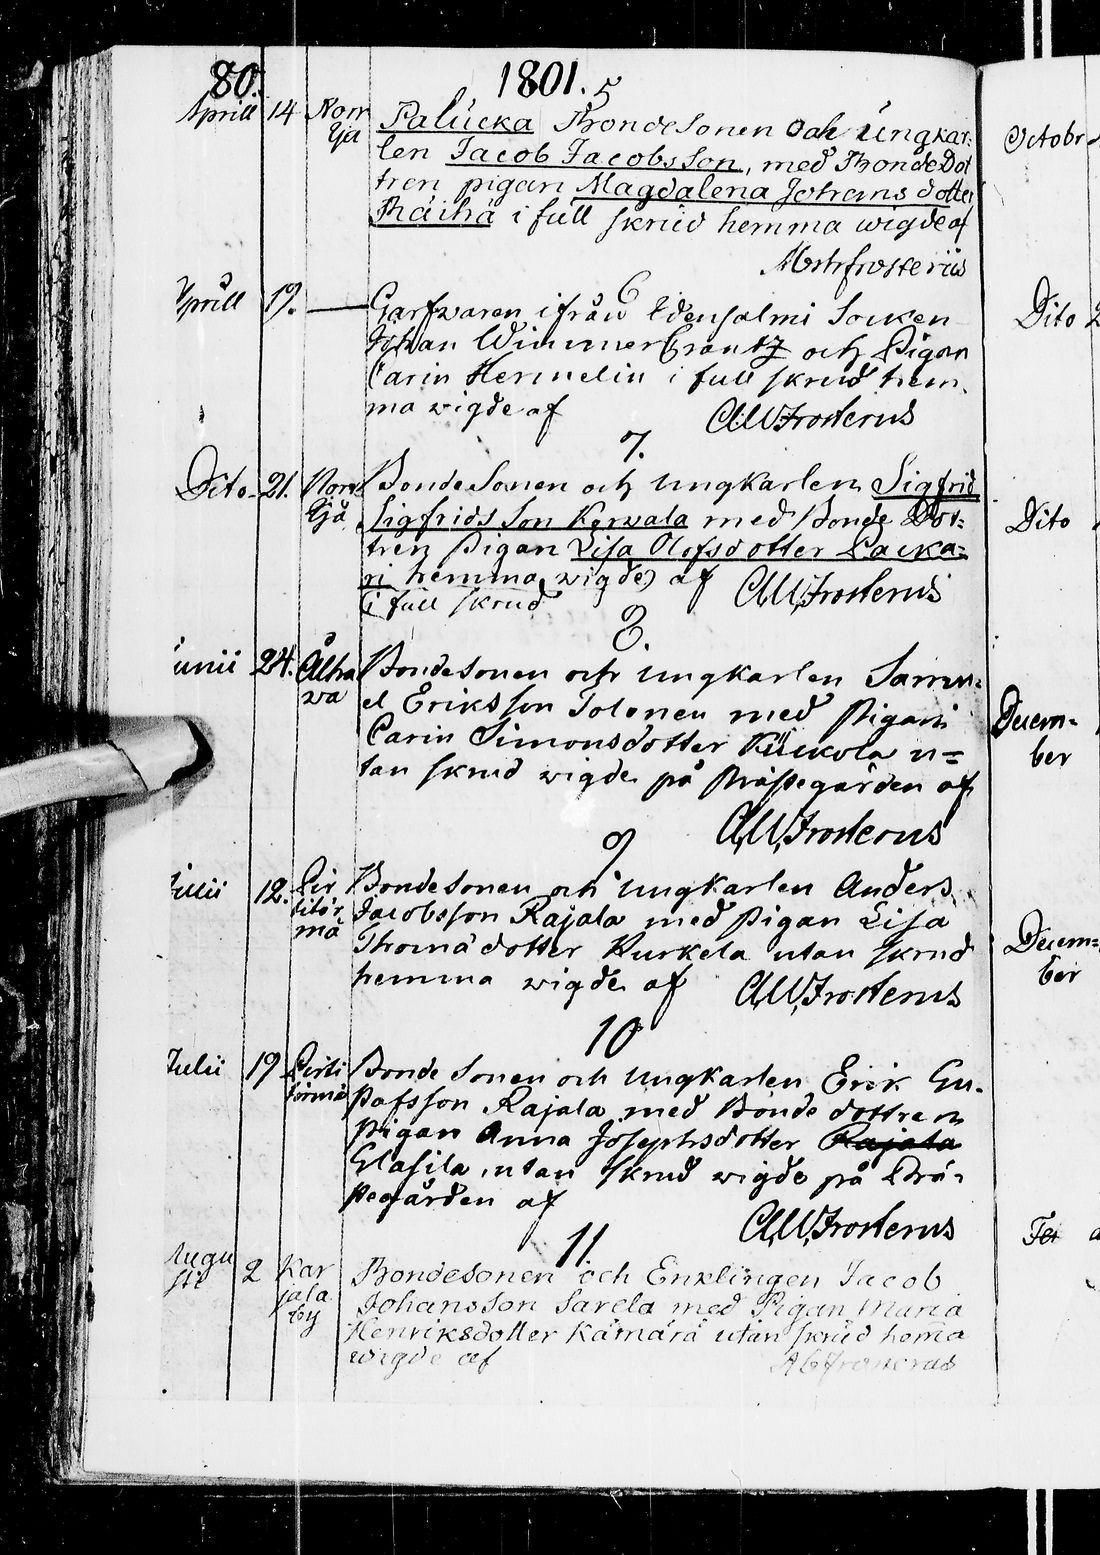 80.
1801.
5
Aprill 14 Norr Palucka BondeSonen och Ungkar:
Ija len Jacob JacobsSon, med BondeDot
tren pigan Magdalena Johans dotter
Räihä i full skrud hemma wigde af
Frosterus
6
Aprill 19. — Garfwaren ifrån Idensalmi Socken
Johan Wimmercrantz och Pigan
Carin Hermelin i full skrud hem
ma wigde af Frosterus
7.
Dito 21. Norr BondeSonen och ungkarlen Sigfrid
Ijå Sigfrids Son Kerwala med Bonde Dot=
tren Pigan Lisa Olofsdotter Packa=
ri hemma wigde af Frosterus
i full skrud
8.
Junii 24. Alha BondeSonen och ungkarlen Samu=
wa el Eriksson Tolonen med Pigan
Carin Simonsdotter Kukkola u=
tan skrud wigde på Prästegården af
Frosterus
9
Julii 12. Pir BondeSonen och ungkarlen Anders
titör Jacobsson Rajala med pigan Lisa
mä Thomä dotter Kurkela utan skrud
hemma wigde af Frosterus
10
Julii 19 Pirti BondeSonen och ungkarlen Erik Gu=
törmä stafsson Rajala med Bonde dottren
pigan Anna Josephsdotter Rajala
Glasila utan skrud wigde på Prä=
stegården af
Frosterus
11.
Augu 2 Kar Bondesonen och Enklingen Jacob
sti jala Johansson Sarela med Pigan Maria
by Henriksdotter Kämärä utan skrud hema
wigde af Frosterus
Octobr
Dito 2
Dito
Decem=
ber
Decem=
ber